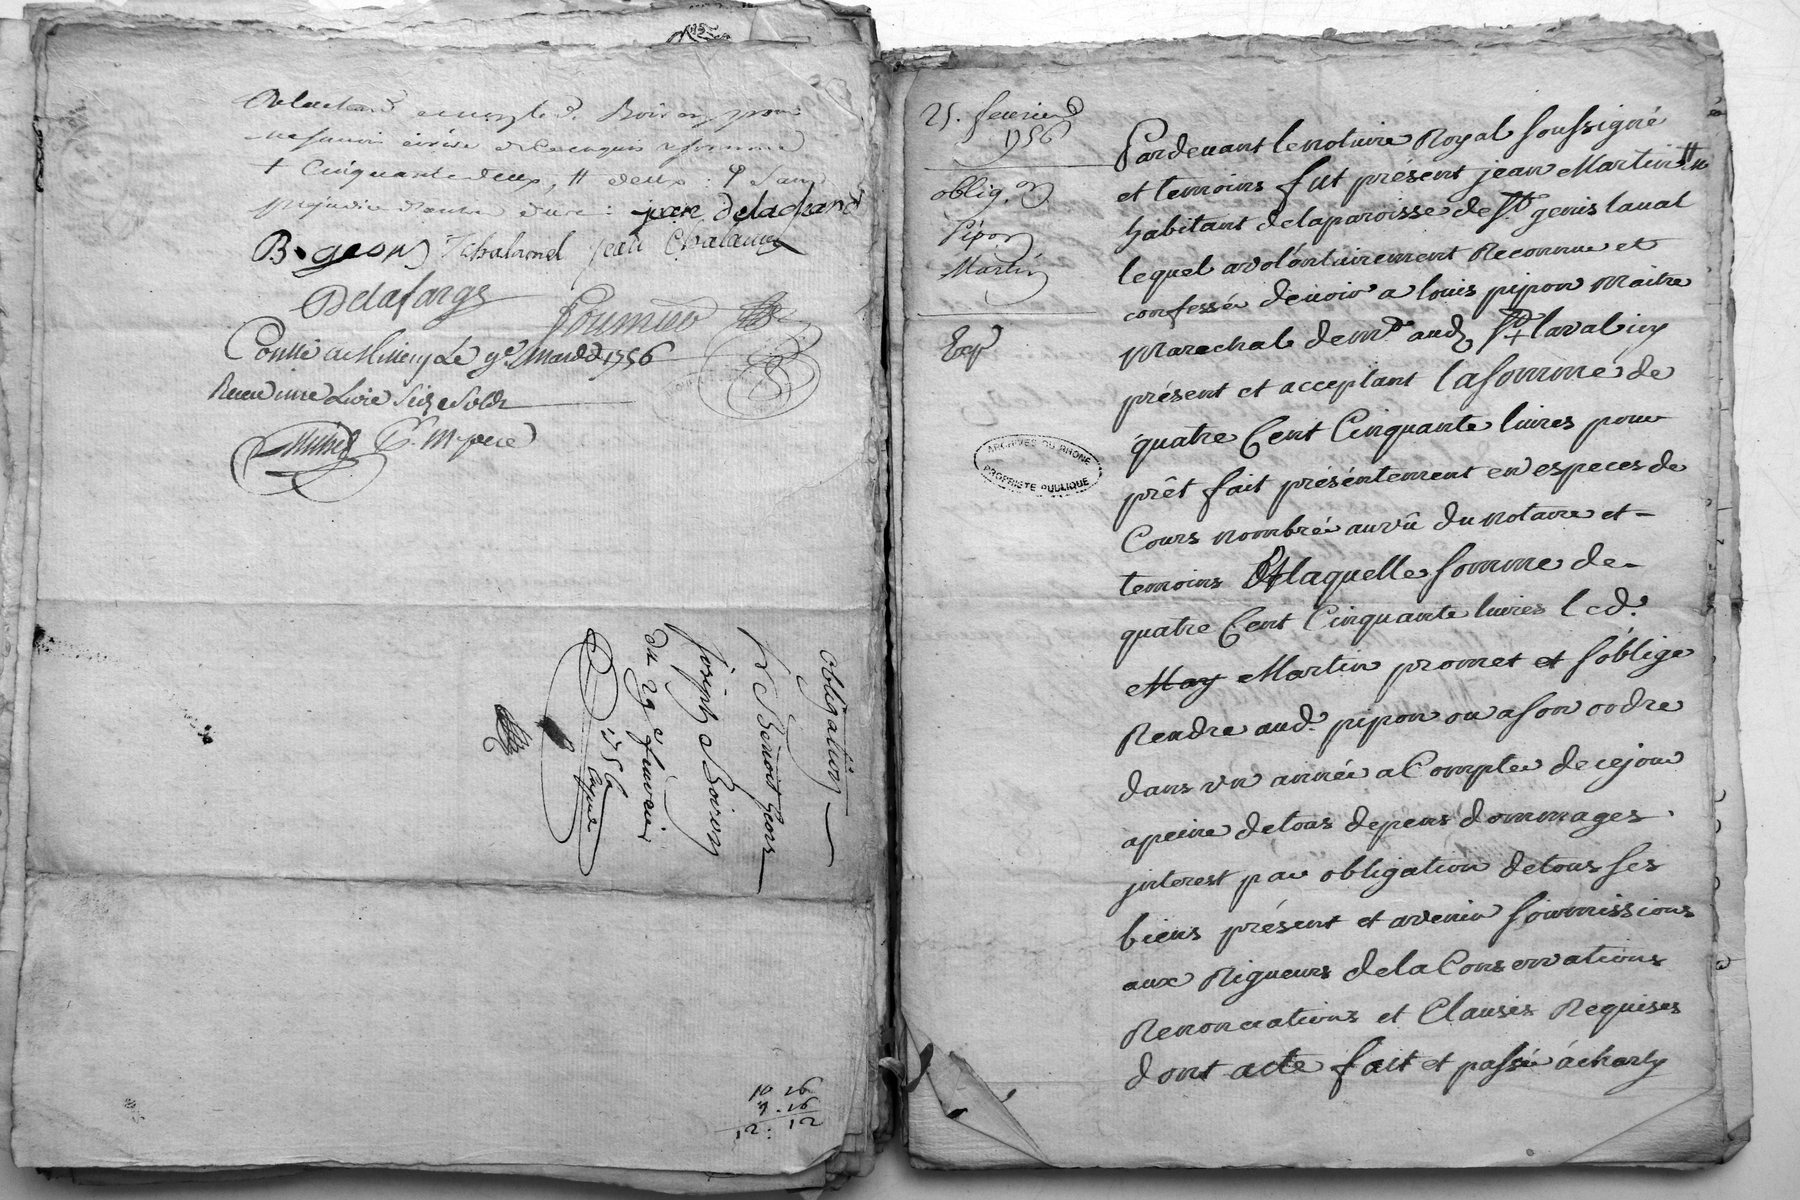 Boiron pour
+ Cinquante deux, # deux : sans
prejudice d'autre due : jean delagrand
B. geons Jchalamel jean Chalamel
Delafarge
Fournier
Conllé a Millery Le 9e mards 1756
Receu une Livre Seize Solds
obligation
St Benoit Geors
Joseph Boiron
du 29e fevrier
1756
10 26
12 : 12
25. fevrier
1756
oblig.on
Pipon
Martin
Exp
ARCHIVES DU RHONE
PROPRIETE PUBLIQUE
Pardevant le notaire Royal soussigné
et temoins fut présent jean Martin #
habitant de la paroisse de St genis laval
lequel a volontairement Reconnu et
confessé devoir a louis pipon maitre
marechal demt aud St laval icy
présent et acceptant la somme de
quatre Cent Cinquante livres pour
prêt fait présentement en especes de
Cours nombréé au vû du notaire et
temoins Et laquelle somme de
quatre Cent Cinquante livres led.
May Martin promet et s'oblige
Rendre aud. pipon ou a son ordre
dans vn année a Compter de ce jour
a peine de tous depens dommages
interest par obligation de tous ses
biens présent et avenir soumissions
aux Rigueurs de la Conservations
Renonciations et Clauses Requises
dont acte fait et passé à charly